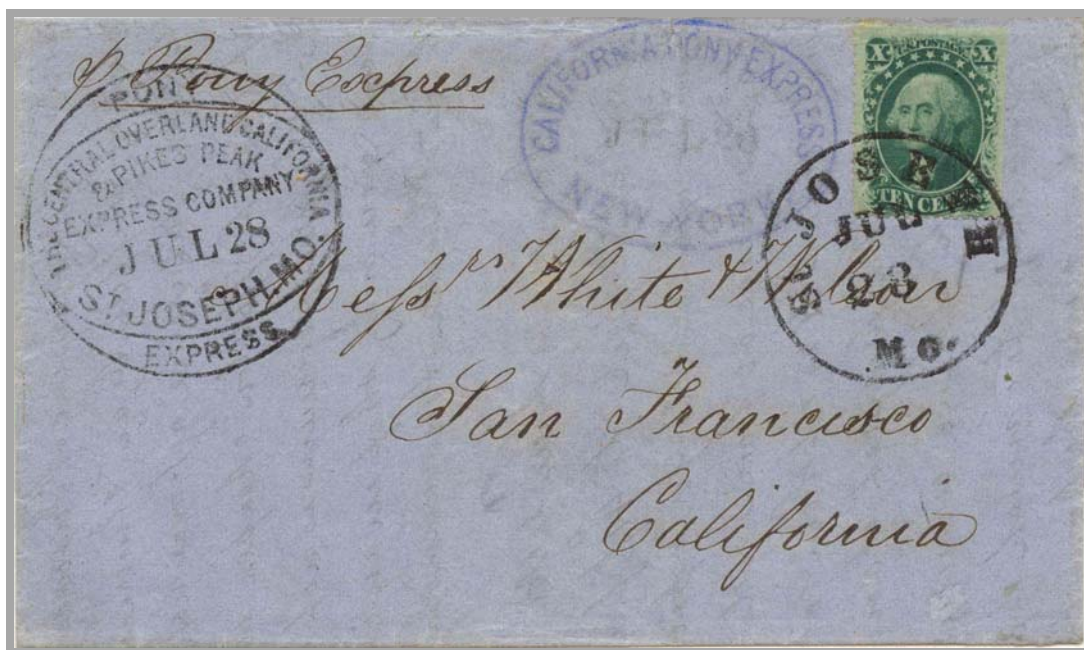 p Pony Express
PONY
THE CENTRAL OVERLAND CALIFORNIA
& PIKES PEAK
EXPRESS COMPANY
JUL 28
ST JOSEPH, MO.
EXPRESS
CALIFORNIA PONY EXPRESS
NEW-YORK
X U.S. POSTAGE X
TEN CENTS
ST. JOSEPH
JUL
28
Mo.
Messrs White & Wilson
San Francisco
California